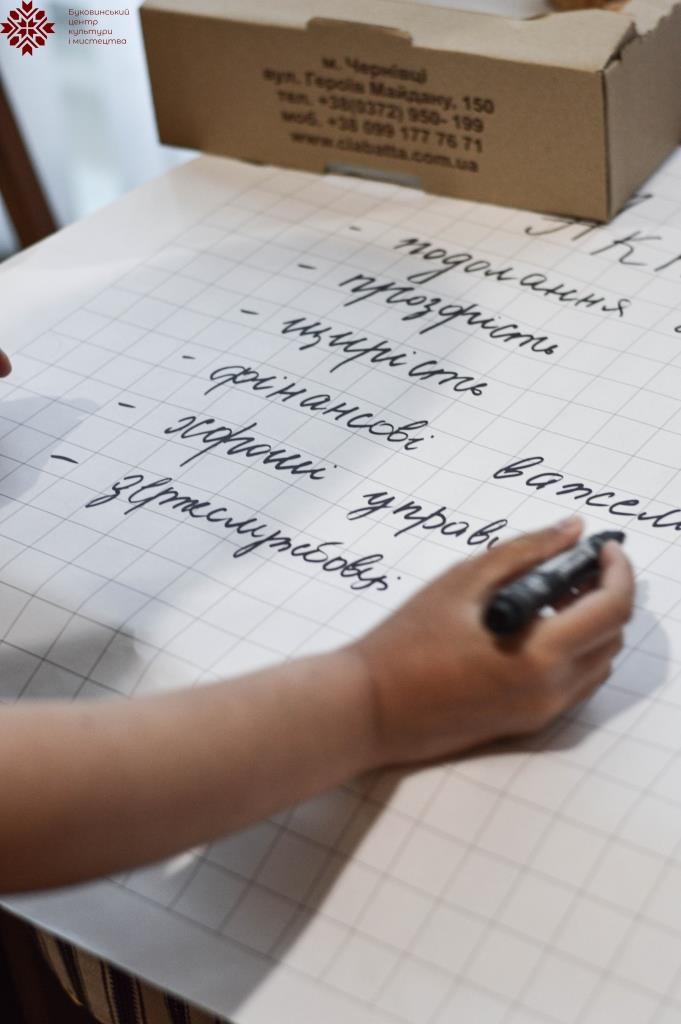 Буковинський
центр
культури
і мистецтва
м. Чернівці
вул. Героїв Майдану, 150
тел. +38(0372) 950- 199
моб. +38 099 177 76 71
www.ciabatta.com.ua
- подолання
- прозорість
- щирість
- фінансові важел
- хороші управ
- держслужбовці